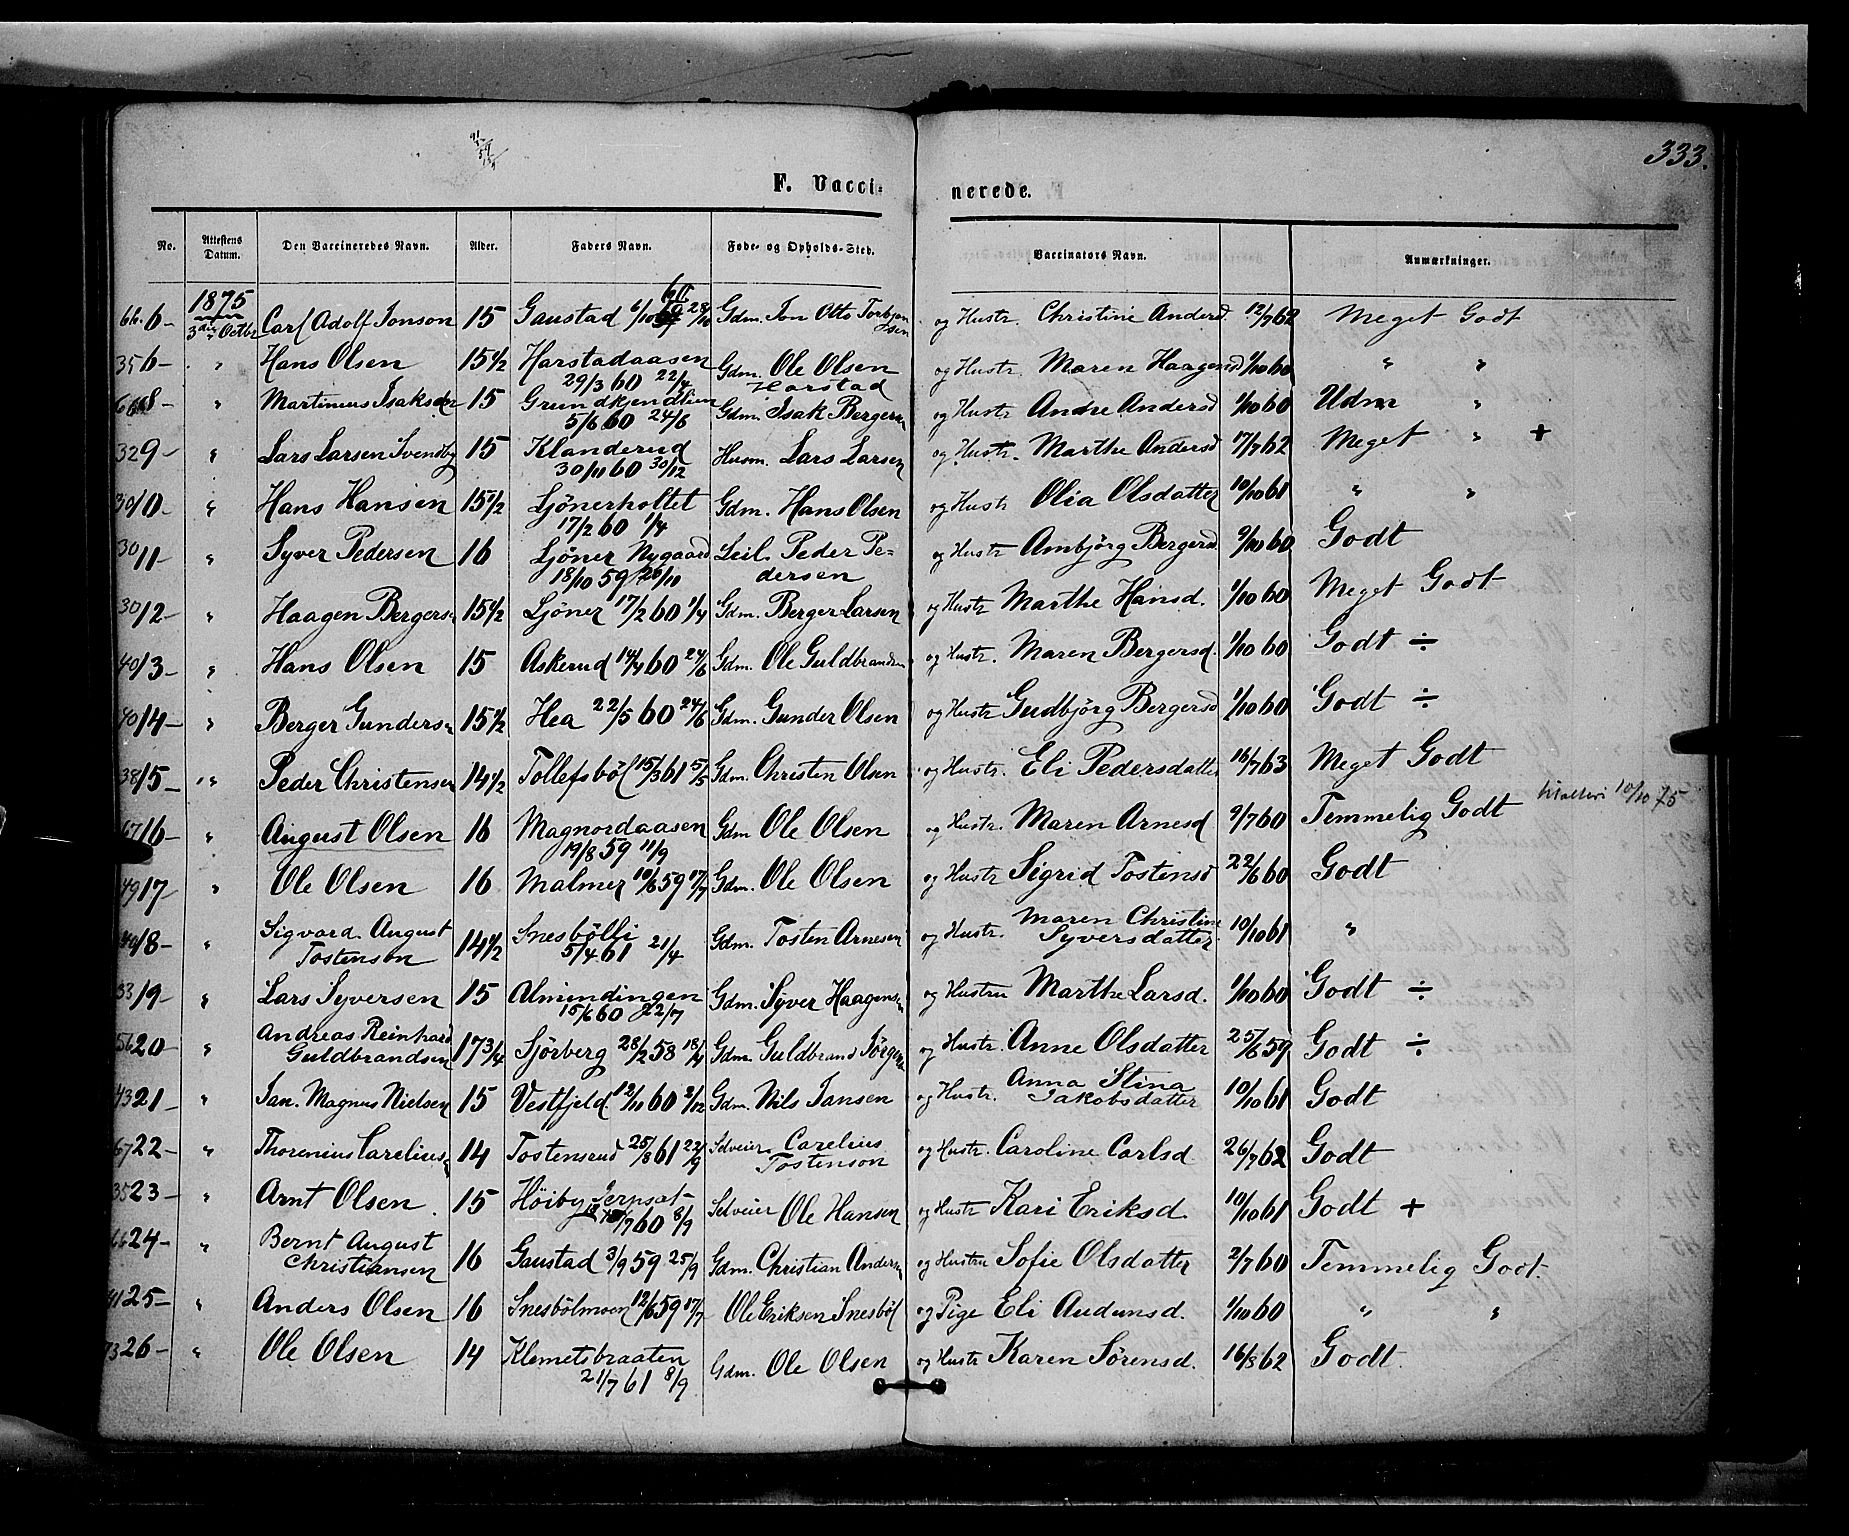 333.
F. Vacci= nerede.
No. Attestens Datum. Den Vaccineredes Navn. Alder. Faders Navn. Føde- og Opholds-Sted. Vaccinators Navn. Anmærkninger.
1875
66. 6- 3die Octbr Carl Adolf Jonson 15 Gaustad 6/10 60 28/10 Gdm. Jon Otto Torbjønsen og Hustr. Christine Andersd. 12/7 62 Meget Godt
35 6- " Hans Olsen 15 1/2 Harstadaasen 29/3 60 22/4 Gdm. Ole Olsen Harstad og Hustr. Maren Haagensd 1/10 60 " "
8- " Martinius Isaksen 15 Grundkjendlien 5/6 60 24/6 Gdm. Isak Bergersen og Hustr Andre Andersd 1/10 60 Udm "
32 9- " Lars Larsen Svendby 15 Klanderud 30/11 60 30/12 Husm. Lars Larsen og Hustr. Marthe Andersd 17/7 62 Meget " +
30 10- " Hans Hansen 15 1/2 Ljønerholtet 17/2 60 1/4 Gdm. Hans Olsen og Hustr Olia Olsdatter 10/10 61 " "
30 11- " Syver Pedersen 16 Ljøner Nygaard 18/10 59 20/11 Leil. Peder Pe=
dersen og Hustr Ambjørg Bergersd. 9/10 60 Godt
30 12- " Haagen Bergersen 15 1/2 Ljøner 17/2 60 1/4 Gdm. Berger Larsen og Hustr Marthe Hansd. 1/10 60 Meget Godt
40 13- " Hans Olsen 15 Askerud 14/4 60 24/6 Gdm. Ole Guldbrandsen og Hustr. Maren Bergersd. 1/10 60 Godt ÷
40 14- " Berger Gundersen 15 1/2 Hea 22/5 60 24/6 Gdm. Gunder Olsen og Hustr Gudbjørg Bergersd 1/10 60 Godt ÷
38 15- " Peder Christensen 14 1/2 Tollefsbøl 15/3 61 5/5 Gdm. Christen Olsen og Hustr. Eli Pedersdatter 16/7 63 Meget Godt
67 16- " August Olsen 16 Magnordaasen 19/8 59 11/9 Gdm Ole Olsen og Hustr. Maren Arnesd 9/7 60 Temmelig Godt 10/10 75
49 17- " Ole Olsen 16 Malmer 10/6 59 17/7 Gdm. Ole Olsen og Hustr Sigrid Tostensd 22/6 60 Godt
40 18- " Sigvard August Tostenson 14 1/2 Snesbølli 5/4 61 21/4 Gdm. Tosten Arnesen og Hustr. Maren Christine Syversdatter 10/10 61 "
33 19- " Lars Syversen 15 Almindingen 15/6 60 22/7 Gdm. Syver Haagensen og Hustru Marthe Larsd. 1/10 60 Godt ÷
56 20- " Andreas Reinhard Guldbrandsen 17 3/4 Sjørberg 28/2 58 18/4 Gdm. Guldbrand Jørgensen og Hustr. Anne Olsdatter 25/6 59 Godt ÷
43 21- " Jan. Magnus Nielsen 15 Vestfjeld 12/11 60 2/12 Gdm. Nils Jansen og Hustr. Anna Stina Jakobsdatter 10/10 61 Godt
67 22- " Thorenius Careliusen 14 Tostensrud 25/8 61 22/9 Selveier Carelius Tostenson og Hustr. Caroline Carlsd 26/7 62 Godt
35 23- " Arnt Olsen. 15 Høiby Jernsat- /7 60 8/9 Selveier Ole Hansen og Hustr Kari Eriksd. 10/10 61 Godt +
66 24- " Bernt August Christiansen 16 Gaustad 3/9 59 25/9 Gdm. Christian Andersen og Hustru Sofie Olsdatter 2/7 60 Temmelig Godt.
41 25- " Anders Olsen 16 Snesbølmoen 12/6 59 17/7 Ole Eriksen Snesbøl og Pige Eli Audunsd. 1/10 60 " "
73 26- " Ole Olsen 14 Klemetsbraaten 21/7 61 8/9 Gdm. Ole Olsen og Hustr Karen Sørensd. 16/8 62 Godt.